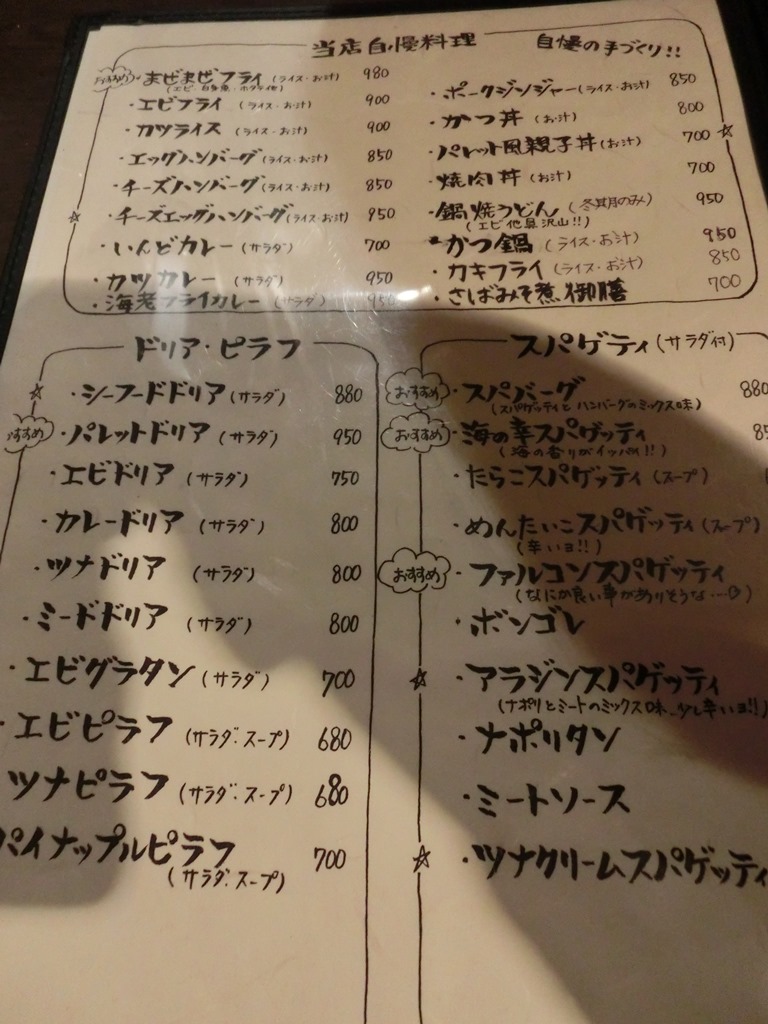 当店自慢料理 自慢の手づくり!!
おすすめ ・まぜまぜフライ (ライス・お汁) 980
(エビ・白身魚・ホタテ他)
・エビフライ (ライス・お汁) 900
・カツライス (ライス・お汁) 900
・エッグハンバーグ (ライス・お汁) 850
・チーズハンバーグ (ライス・お汁) 850
☆ ・チーズエッグハンバーグ (ライス・お汁) 950
・いんどカレー (サラダ) 700
・カツカレー (サラダ) 950
・海老フライカレー (サラダ) 950
・ポークジンジャー (ライス・お汁) 850
・かつ丼 (お汁) 800
・パレット風親子丼 (お汁) 700 ☆
・焼肉丼 (お汁) 700
・鍋焼うどん (冬期のみ) 950
(エビ他具沢山!!)
・かつ鍋 (ライス・お汁) 950
・カキフライ (ライス・お汁) 850
・さばみそ煮御膳 700
ドリア・ピラフ
☆ ・シーフードドリア (サラダ) 880
すすめ ・パレットドリア (サラダ) 950
・エビドリア (サラダ) 750
・カレードリア (サラダ) 800
・ツナドリア (サラダ) 800
・ミードドリア (サラダ) 800
・エビグラタン (サラダ) 700
・エビピラフ (サラダ・スープ) 680
ツナピラフ (サラダ・スープ) 680
パイナップルピラフ 700
(サラダ・スープ)
スパゲティ (サラダ付)
おすすめ ・スパバーグ 880
(スパゲッティとハンバーグのミックス味)
おすすめ ・海の幸スパゲッティ
(海の香りがイッパイ!!)
・たらこスパゲッティ (スープ)
・めんたいこスパゲッティ (スープ)
(辛いヨ!!)
おすすめ ・ファルコンスパゲッティ
(なにか良い事がありそうな…)
・ボンゴレ
☆ ・アラジンスパゲッティ
(ナポリとミートのミックス味、少し辛いヨ!!)
・ナポリタン
・ミートソース
☆ ・ツナクリームスパゲッティ